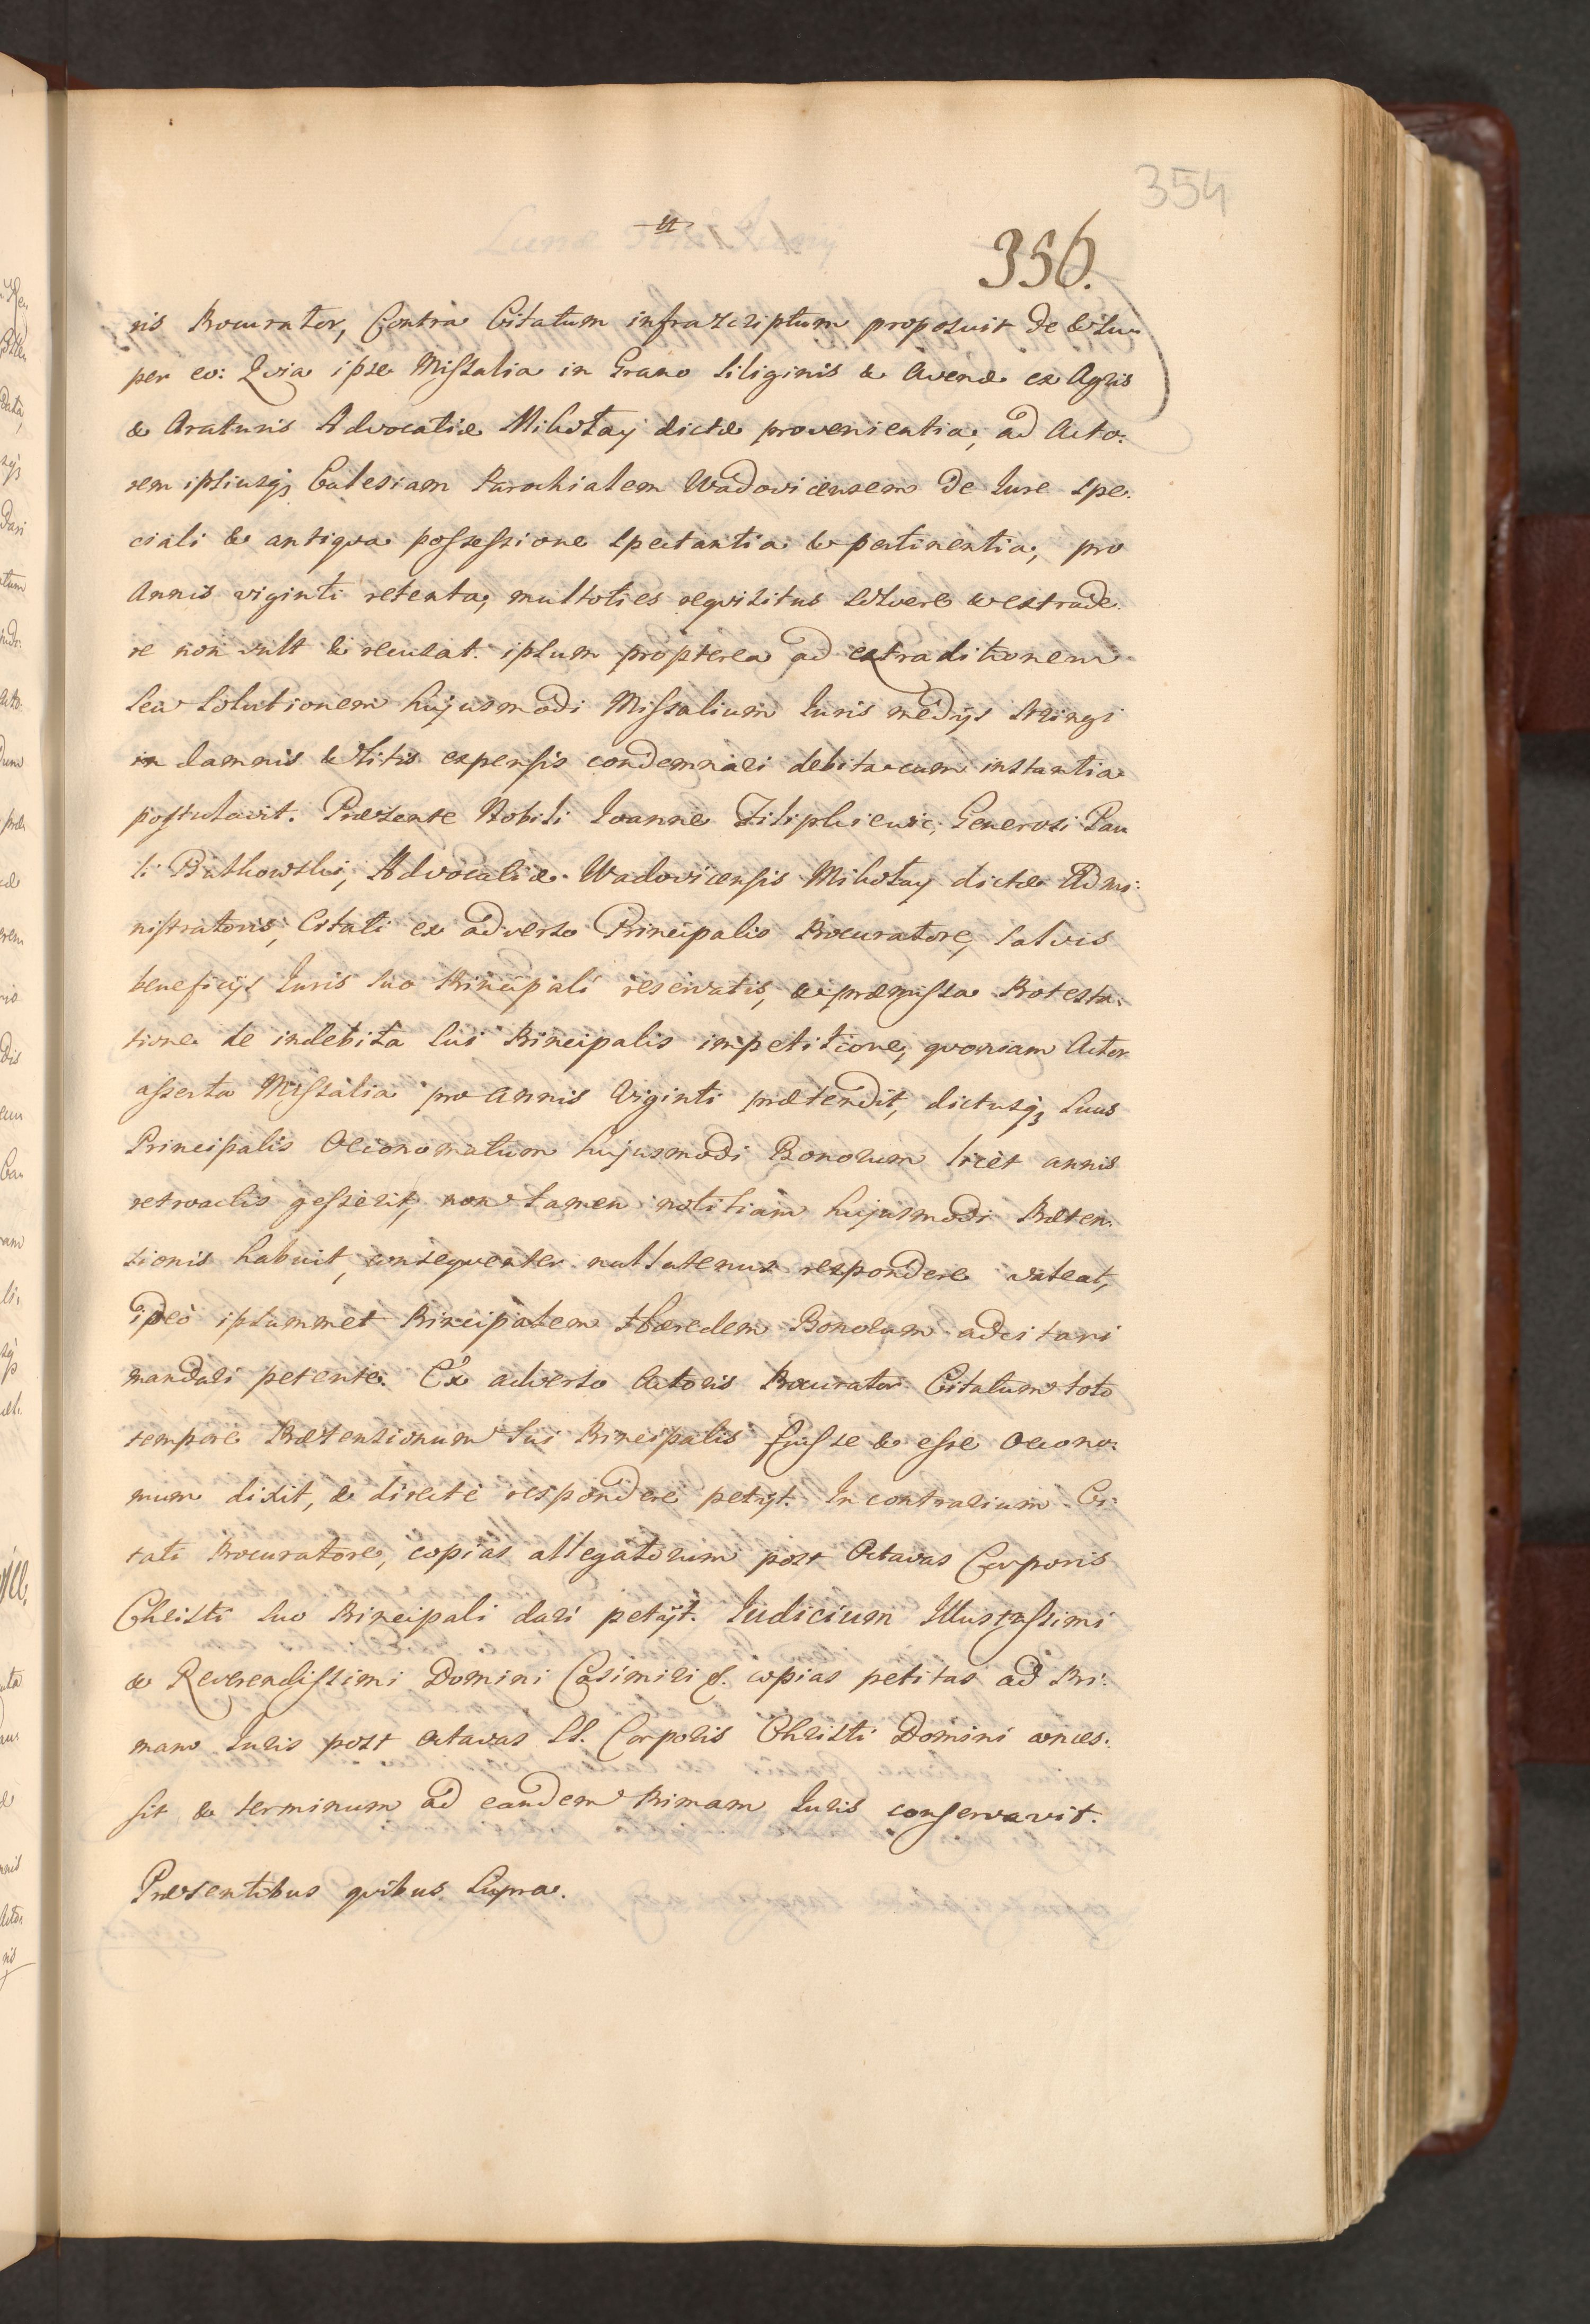 354
356.
nis Procurator, Contra Citatum infrascriptum proposuit de & Su-
per eo: Qvia ipse Missalia in Grano Siliginis & Avenæ ex Agris
& Araturis Advocatiæ Mikołay dictæ provenientia, ad Acto:
rem ipsiusq3 Eclesiam Parochialem Wadovicensem de Iure spe:
ciali & antiqva possessione spectantia & pertinentia, pro
Annis viginti retenta, multoties reqvisitus solvere & extrade:
re non vult & recusat. ipsum propterea ad extraditionem
seu solutionem hujusmodi Missalium Iuris medijs stringi
in damnis & litis expensis condemnari debita cum instantia
postulavit. Præsente Nobili Ioanne Filiphiewic, Generosi Pau
li Bątkowski, Advocatiæ Wadovicensis Mikołay dictæ Admi:
nistratoris, Citati ex adverso Principalis Procuratore, salvis
beneficijs Iuris suo Principali reservatis, & præmissa Protesta:
tione de indebita sui Principalis impetitione, qvoniam Actor
asserta Missalia pro Annis viginti prætendit, dictusq3 suus
Principalis Oeconomatum hujusmodi Bonorum licèt annis
retroactis gesserit, non tamen notitiam hujusmodi Præten:
sionis habuit, conseqventer nullatenus respondere valeat,
ideò ipsummet Principalem Hæredem Bonorum adcitari
mandari petente. Ex adverso Actoris Procurator Citatum toto
tempore Prætensionum sui Principalis fuisse & esse Oecono:
mum dixit, & directè respondere petijt. In contrarium Ci:
tati Procuratore, copias allegatorum post Octavas Corporis
Christi suo Principali dari petijt. Iudicium Illustrissimi
& Reverendissimi Domini Casimiri &. copias petitas ad Pri:
mam Iuris post octavas SS. Corporis Christi Domini conces:
sit & terminum ad eandem Primam Iuris conservavit.
Præsentibus qvibus supra.